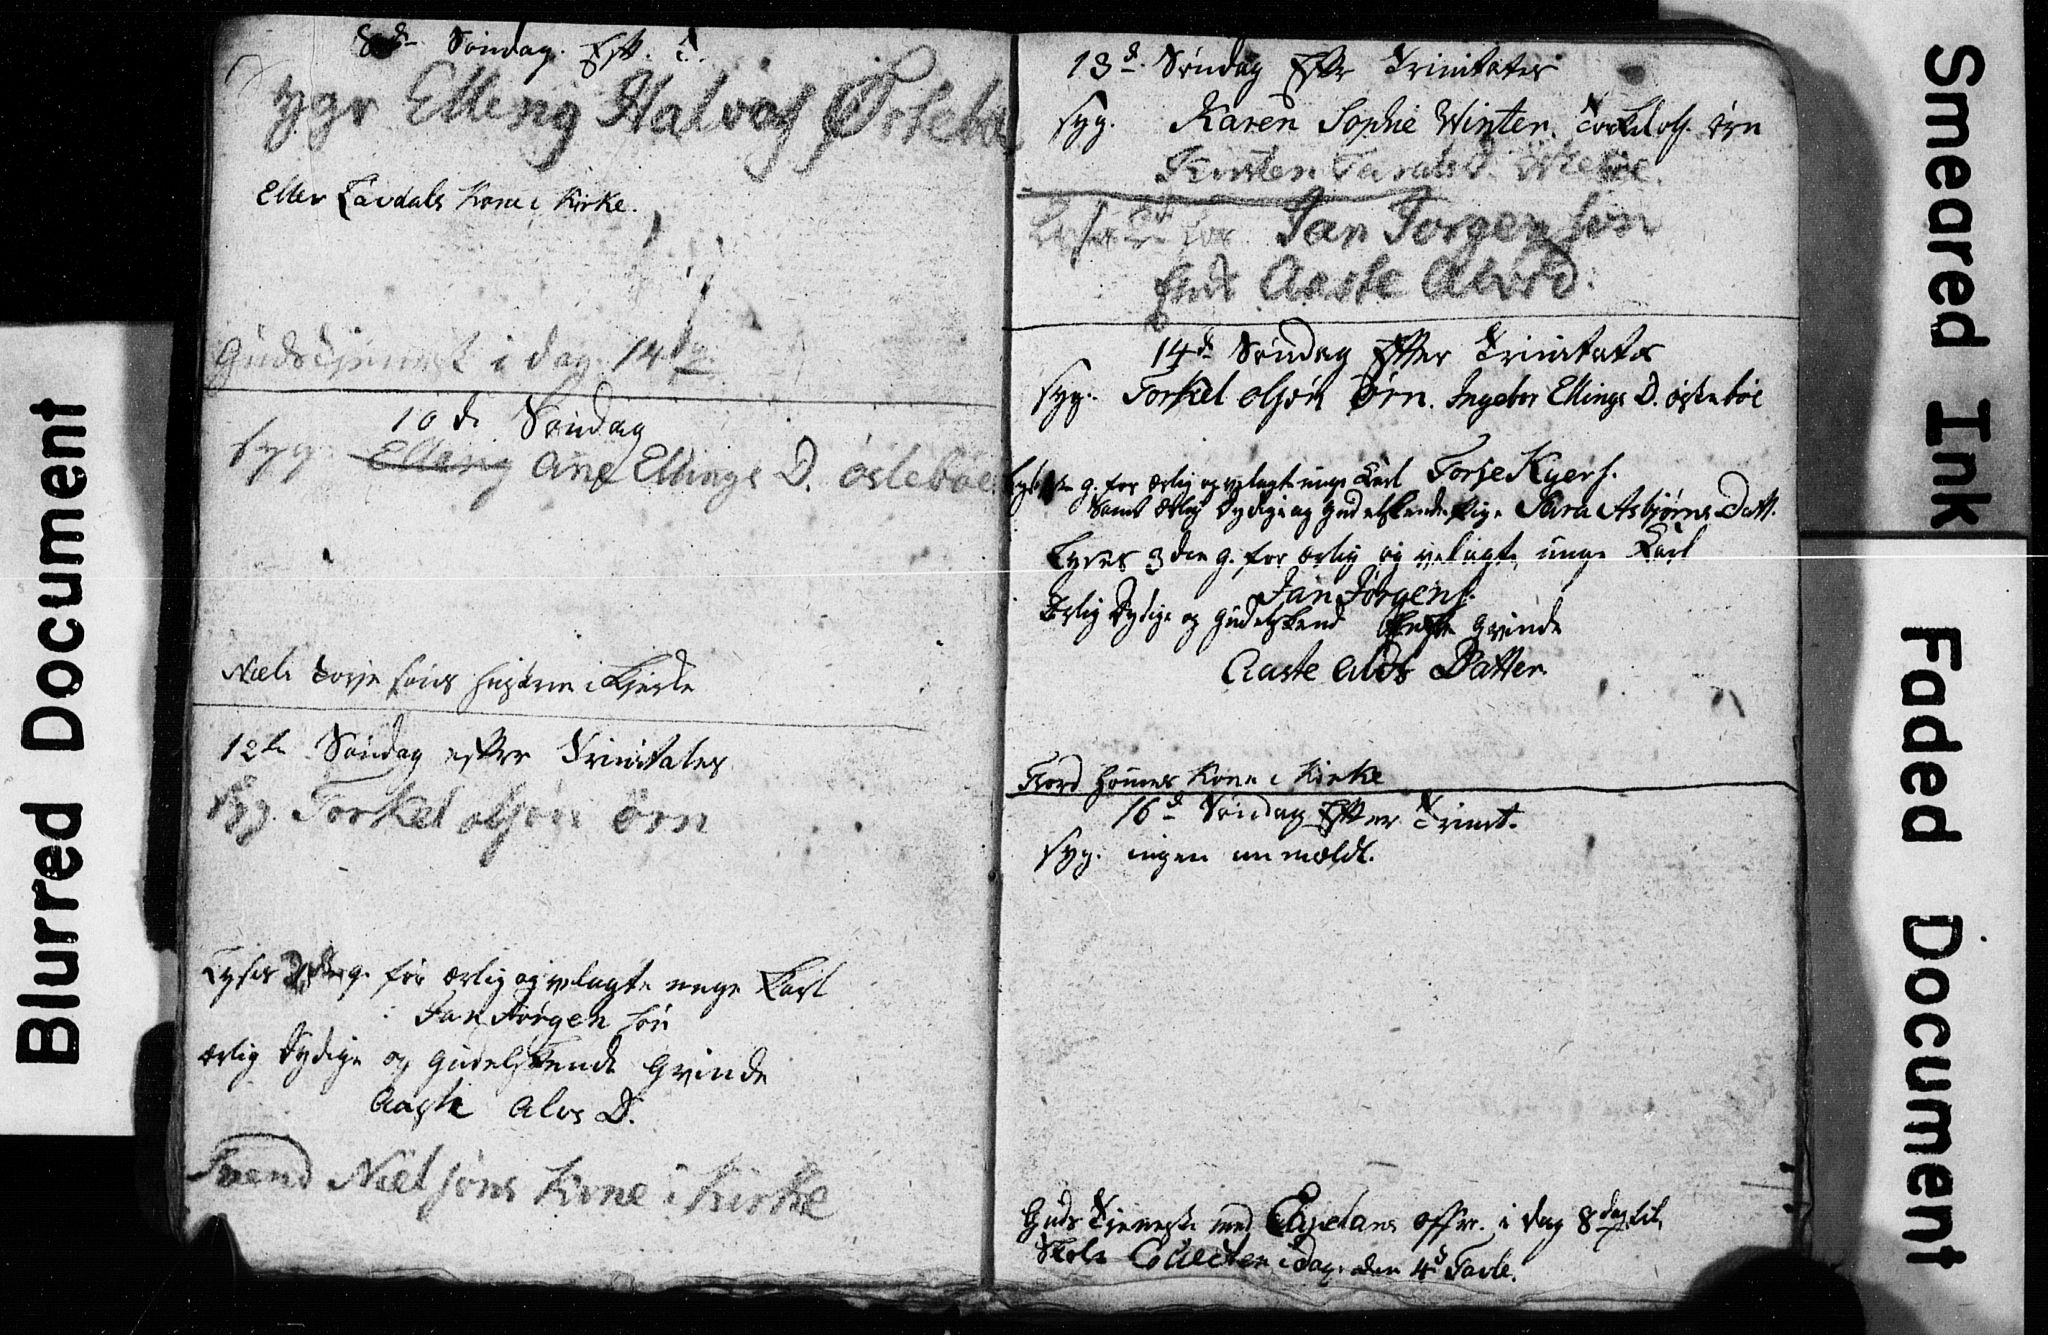 8de Søndag. Eft. T.
syge Elleng Halvors Østebø
Eller Tavdals Kone i Kirke.
Gudstjenest i dag 14 dag.
10de Søndag
syg. Elleng Ane Ellings D. østebøe
Niels Torje søns hustrue i Kirke
12te Søndag efter Trinitates
syg. Torkel olsøn örn
Lyses g. for ærlig og velagte unge Karl
Jan Jørgen søn
ærlig Dydige og gudelskende Qvinde
Aaste Alvs D.
Svend Nielsøns kone i Kirke
13de Søndag Efter Trinitates
syg. Karen Sophie Winter. ørn
Kirsten Taralds D. østebøe.
Jan Jorgensøn
Aaste Alvs D.
14de Søndag Efter Trinitates
syg. Torkel olsøn Ørn. Ingebor Ellings D. østebøe
g. for ærlig og velagte unge Karl Torje Kjers.
Samt ærlig Dydige og gudelskende Pige Sara Asbjørns Datt.
Lyses 3den g. for ærlig og velagte unge Karl
Jan Jørgens.
Ærlig Dydige og gudelskend Qvinde
Aaste Alvs Datter
Kone i Kirke
16de Søndag Efter Trinit.
syg. ingen anmeldt.
Guds Tjeneste med Capelans offer. i dag 8 dag til
Skole Collecten i dag. den 4de Tavle.